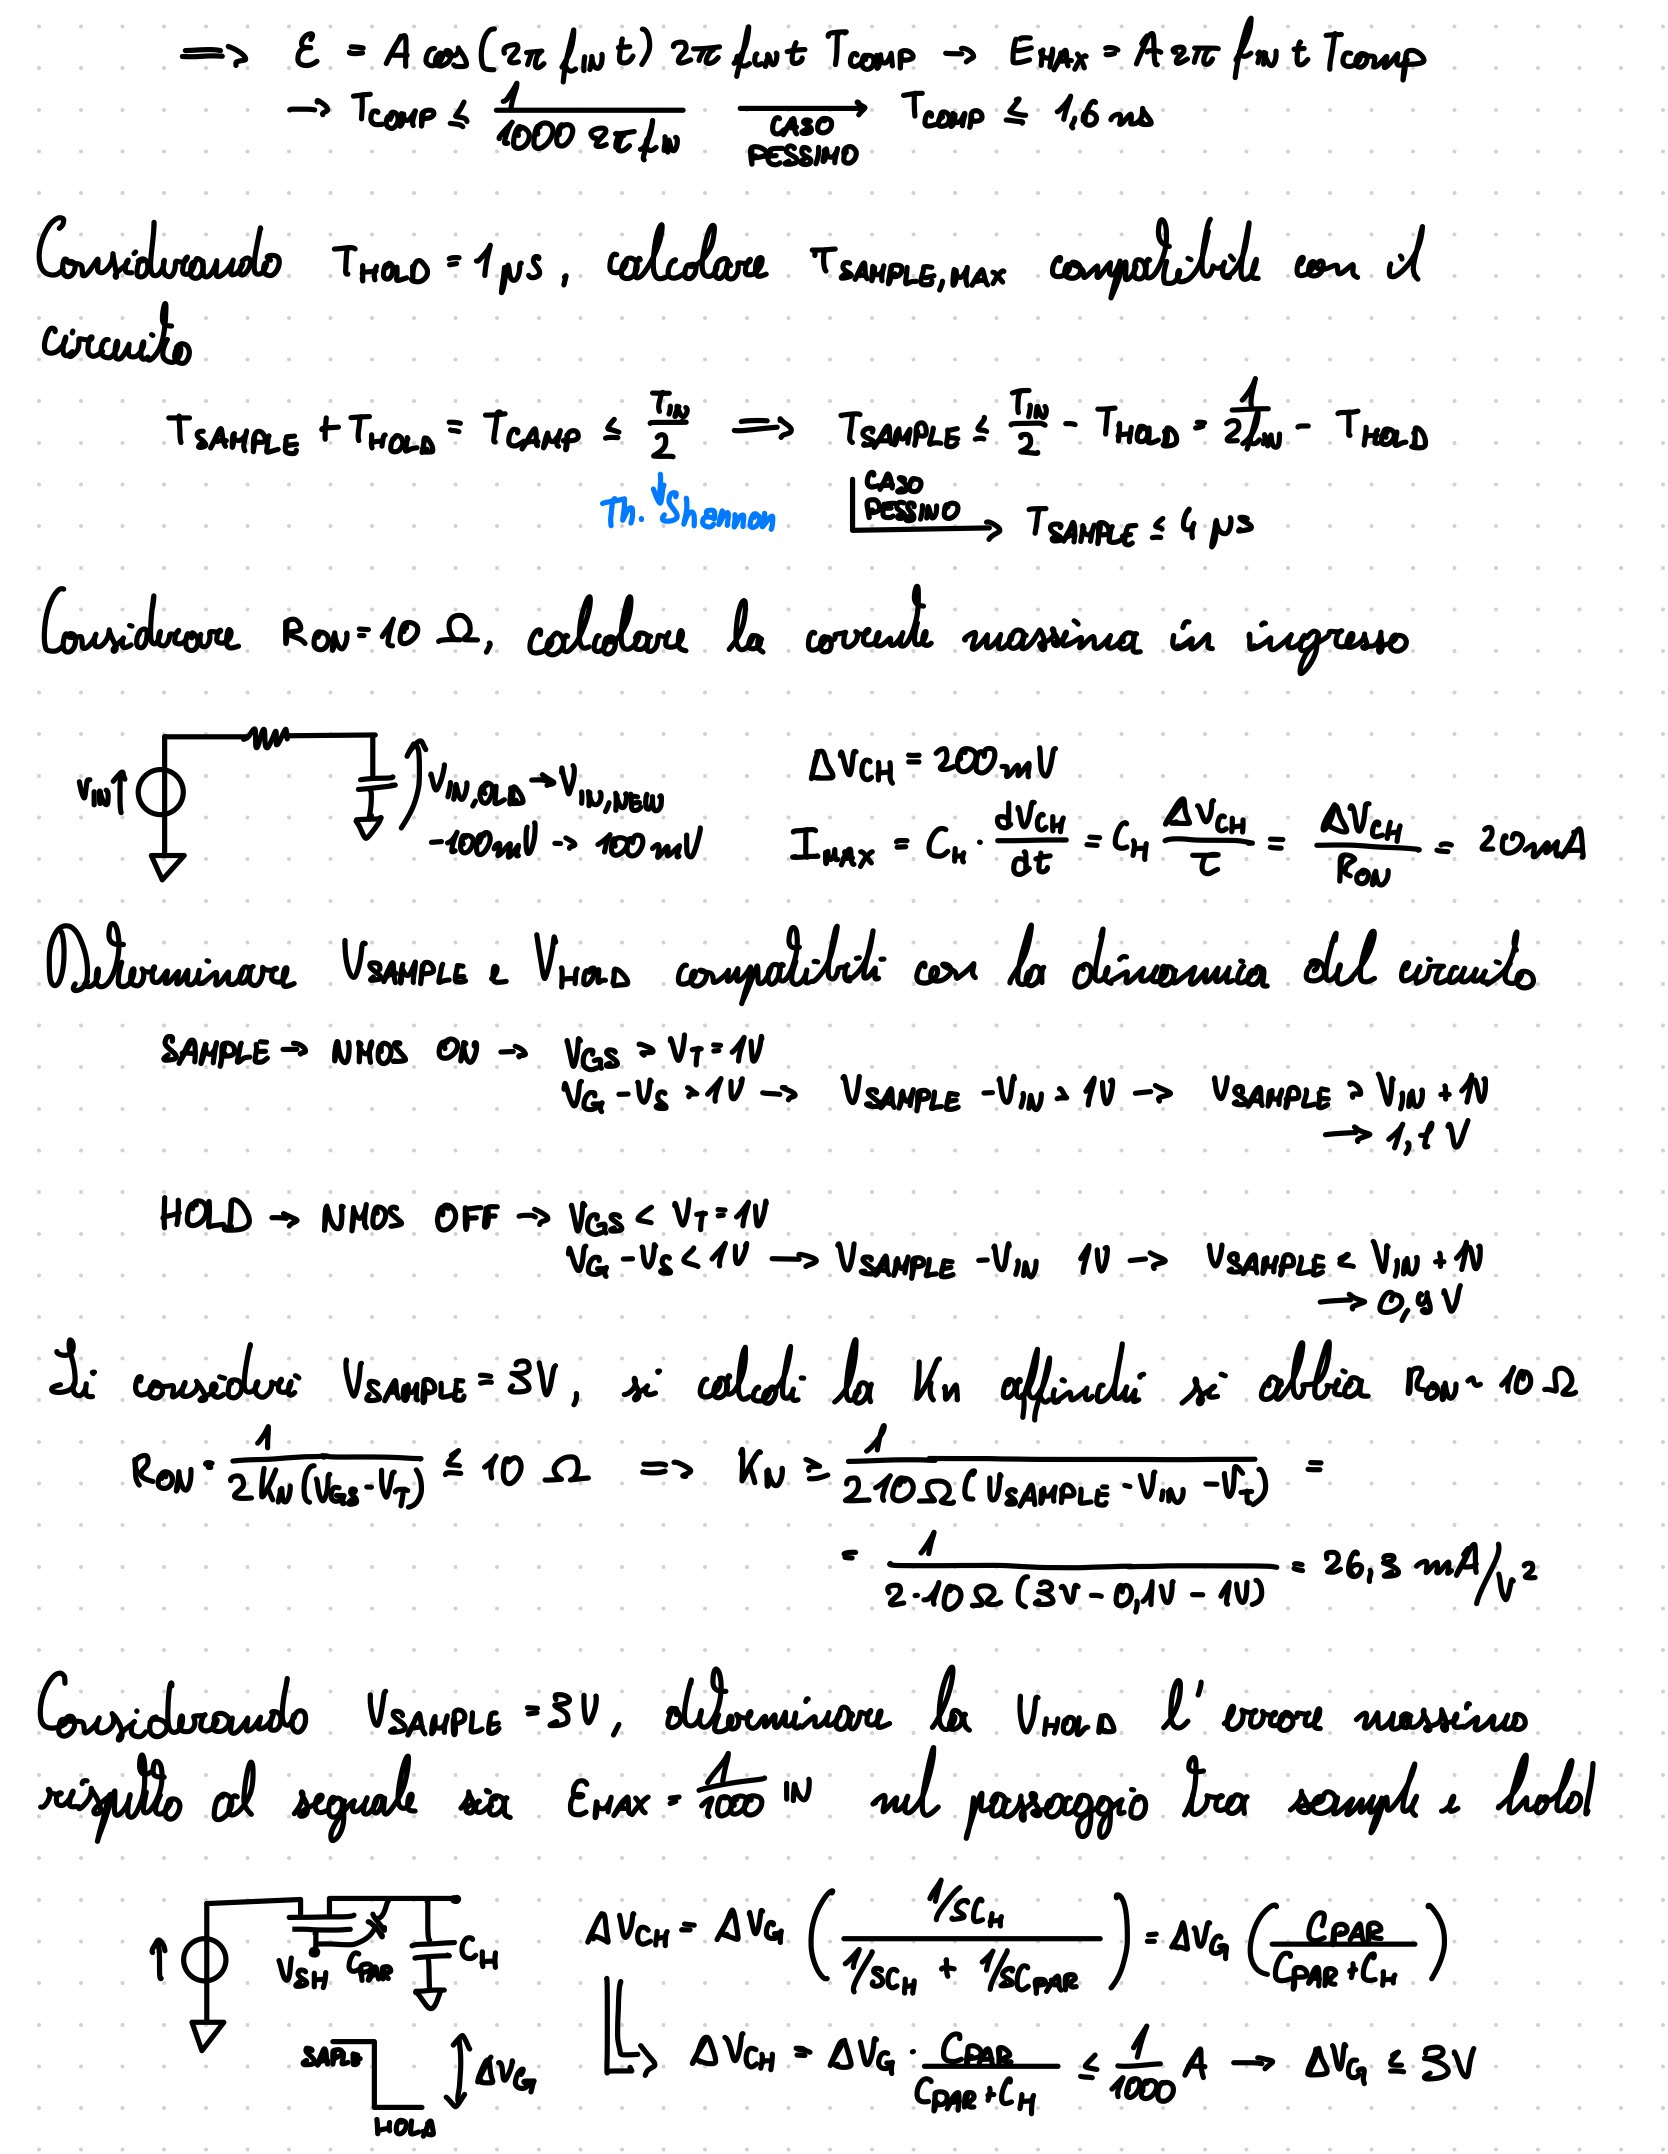 ⟹ ε = A cos(2π fIN t) 2π fIN t TCOMP → EMAX = A 2π fIN t TCOMP
→ TCOMP ≤ 1 / (1000 2π fIN) → CASO PESSIMO TCOMP ≤ 1,6 ns
Considerando THOLD = 1 µs, calcolare TSAMPLE,MAX compatibile con il
circuito
TSAMPLE + THOLD = TCAMP ≤ TIN/2 ⟹ TSAMPLE ≤ TIN/2 - THOLD = 1/(2fIN) - THOLD
Th. Shannon
CASO PESSINO → TSAMPLE ≤ 4 µs
Considerare RON = 10 Ω, calcolare la corrente massima in ingresso
ΔVCH = 200 mV
VIN ↑ VIN,OLD → VIN,NEW
-100mV -> 100 mV
IMAX = CH · dVCH/dt = CH ΔVCH/τ = ΔVCH/RON = 20 mA
Determinare VSAMPLE e VHOLD compatibili con la dinamica del circuito
SAMPLE → NMOS ON → VGS > VT = 1V
VG - VS > 1V → VSAMPLE - VIN > 1V → VSAMPLE > VIN + 1V
→ 1,1 V
HOLD → NMOS OFF → VGS < VT = 1V
VG - VS < 1V → VSAMPLE - VIN 1V → VSAMPLE < VIN + 1V
→ 0,9 V
Si consideri VSAMPLE = 3V, si calcoli la Kn affinchè si abbia RON ~ 10 Ω
RON = 1 / (2 KN (VGS - VT)) ≤ 10 Ω => KN ≥ 1 / (2 10 Ω (VSAMPLE - VIN - VT)) =
= 1 / (2·10 Ω (3V - 0,1V - 1V)) = 26,3 mA/V²
Considerando VSAMPLE = 3V, determinare la VHOLD l' errore massimo
rispetto al segnale sia EMAX = 1/1000 IN nel passaggio tra sample e hold
ΔVCH = ΔVG ( (1/SCH) / (1/SCH + 1/SCPAR) ) = ΔVG ( CPAR / (CPAR + CH) )
VSH CPAR CH
ΔVCH = ΔVG · CPAR / (CPAR + CH) ≤ 1/1000 A → ΔVG ≤ 3V
SAPLE ΔVG
HOLD